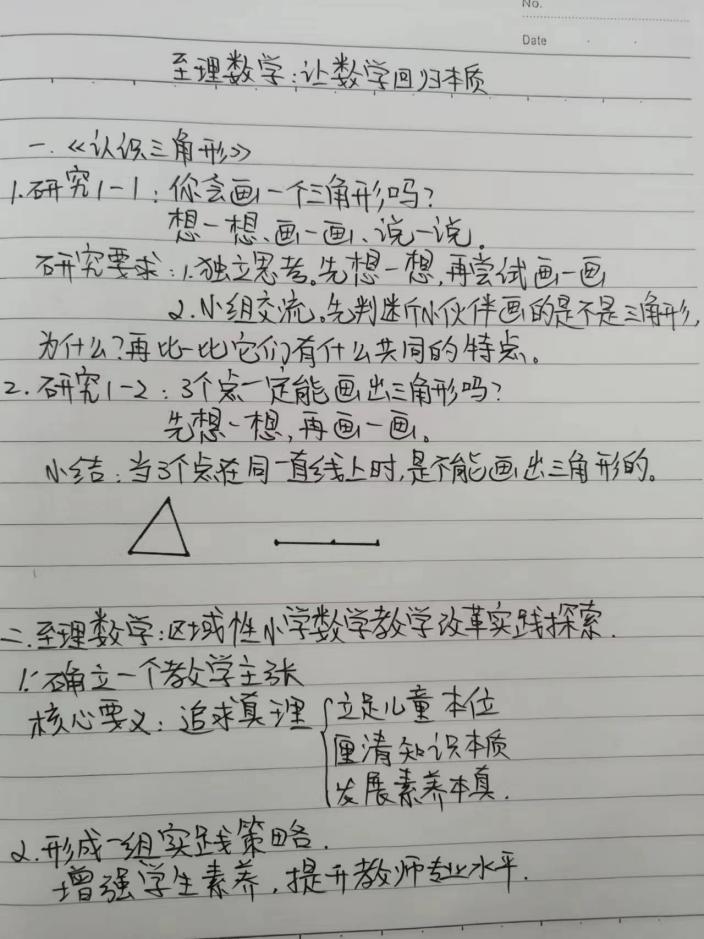 No.
Date
至理数学:让数学回归本质
一.《认识三角形》
1.研究1-1:你会画一个三角形吗?
想一想、画一画、说一说。
研究要求:1.独立思考。先想一想,再尝试画一画
2.小组交流。先判断小伙伴画的是不是三角形,
为什么?再比一比它们有什么共同的特点。
2.研究1-2:3个点一定能画出三角形吗?
先想一想,再画一画。
小结:当3个点在同一直线上时,是不能画出三角形的。
二.至理数学:区域性小学数学教学改革实践探索.
1.确立一个教学主张
核心要义:追求真理{立足儿童本位
厘清知识本质
发展素养本真.
2.形成一组实践策略.
增强学生素养,提升教师专业水平.